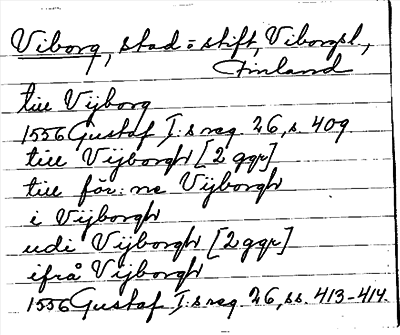 Viborg, stad o stift, Viborgsl.,
Finland
till Vijborg
1556 Gustaf I:s reg. 26, s. 409.
till Vijborgh [2 ggr]
till för:ne Vijborgh
i Vijborgh
udi Vijborgh [2 ggr]
ifrå Vijborgh
1556 Gustaf I:s reg. 26, ss. 413-414.